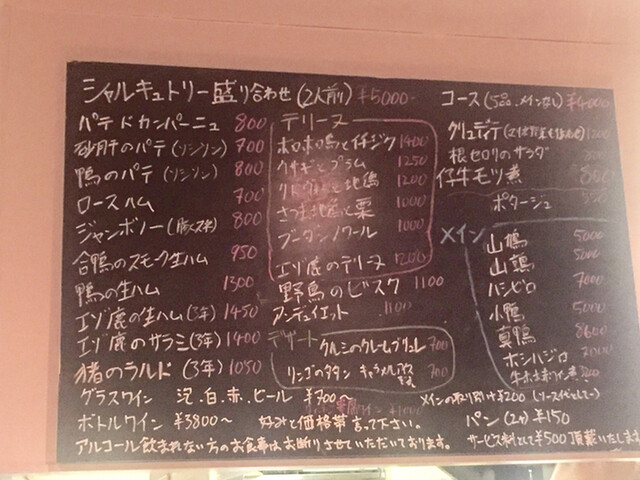 シャルキュトリー盛り合わせ(2人前) ¥5000-
パテ ド カンパーニュ 800
砂肝のパテ(ソシソン) 700
鴨のパテ(ソシソン) 800
ロースハム 700
ジャンボノー 800
合鴨のスモーク生ハム 950
鴨の生ハム 1300
エゾ鹿の生ハム(3年) 1450
エゾ鹿のサラミ(3年) 1400
猪のラルド(3年) 1050
テリーヌ
ホロホロ鳥と 1400
ウサギとプラム 1250
と地鶏 1200
さつま地鶏と栗 1000
ブーダンノワール 1000
エゾ鹿のテリーヌ 1200
野鳥のビスク 1100
アンデュイエット 1100
デザート
クルミのクレームブリュレ 700
リンゴのタタン キャラメルアイス 700
コース(5品、メインなし) ¥4000
クリュディテ
根セロリのサラダ
仔牛モツ煮 800
ポタージュ
メイン
山鳩 5000
山鶉 5000
バシビロ 7000
小鴨 5000
真鴨 8600
ホシハジロ
グラスワイン 泡.白.赤.ビール ¥700〜
ボトルワイン ¥3800〜 好みと価格帯言って下さい。
アルコール飲まれない方のお食事はお断りさせていただいております。
メインの取り分け¥200
パン(2ケ) ¥150
サービス料として¥500頂戴いたします